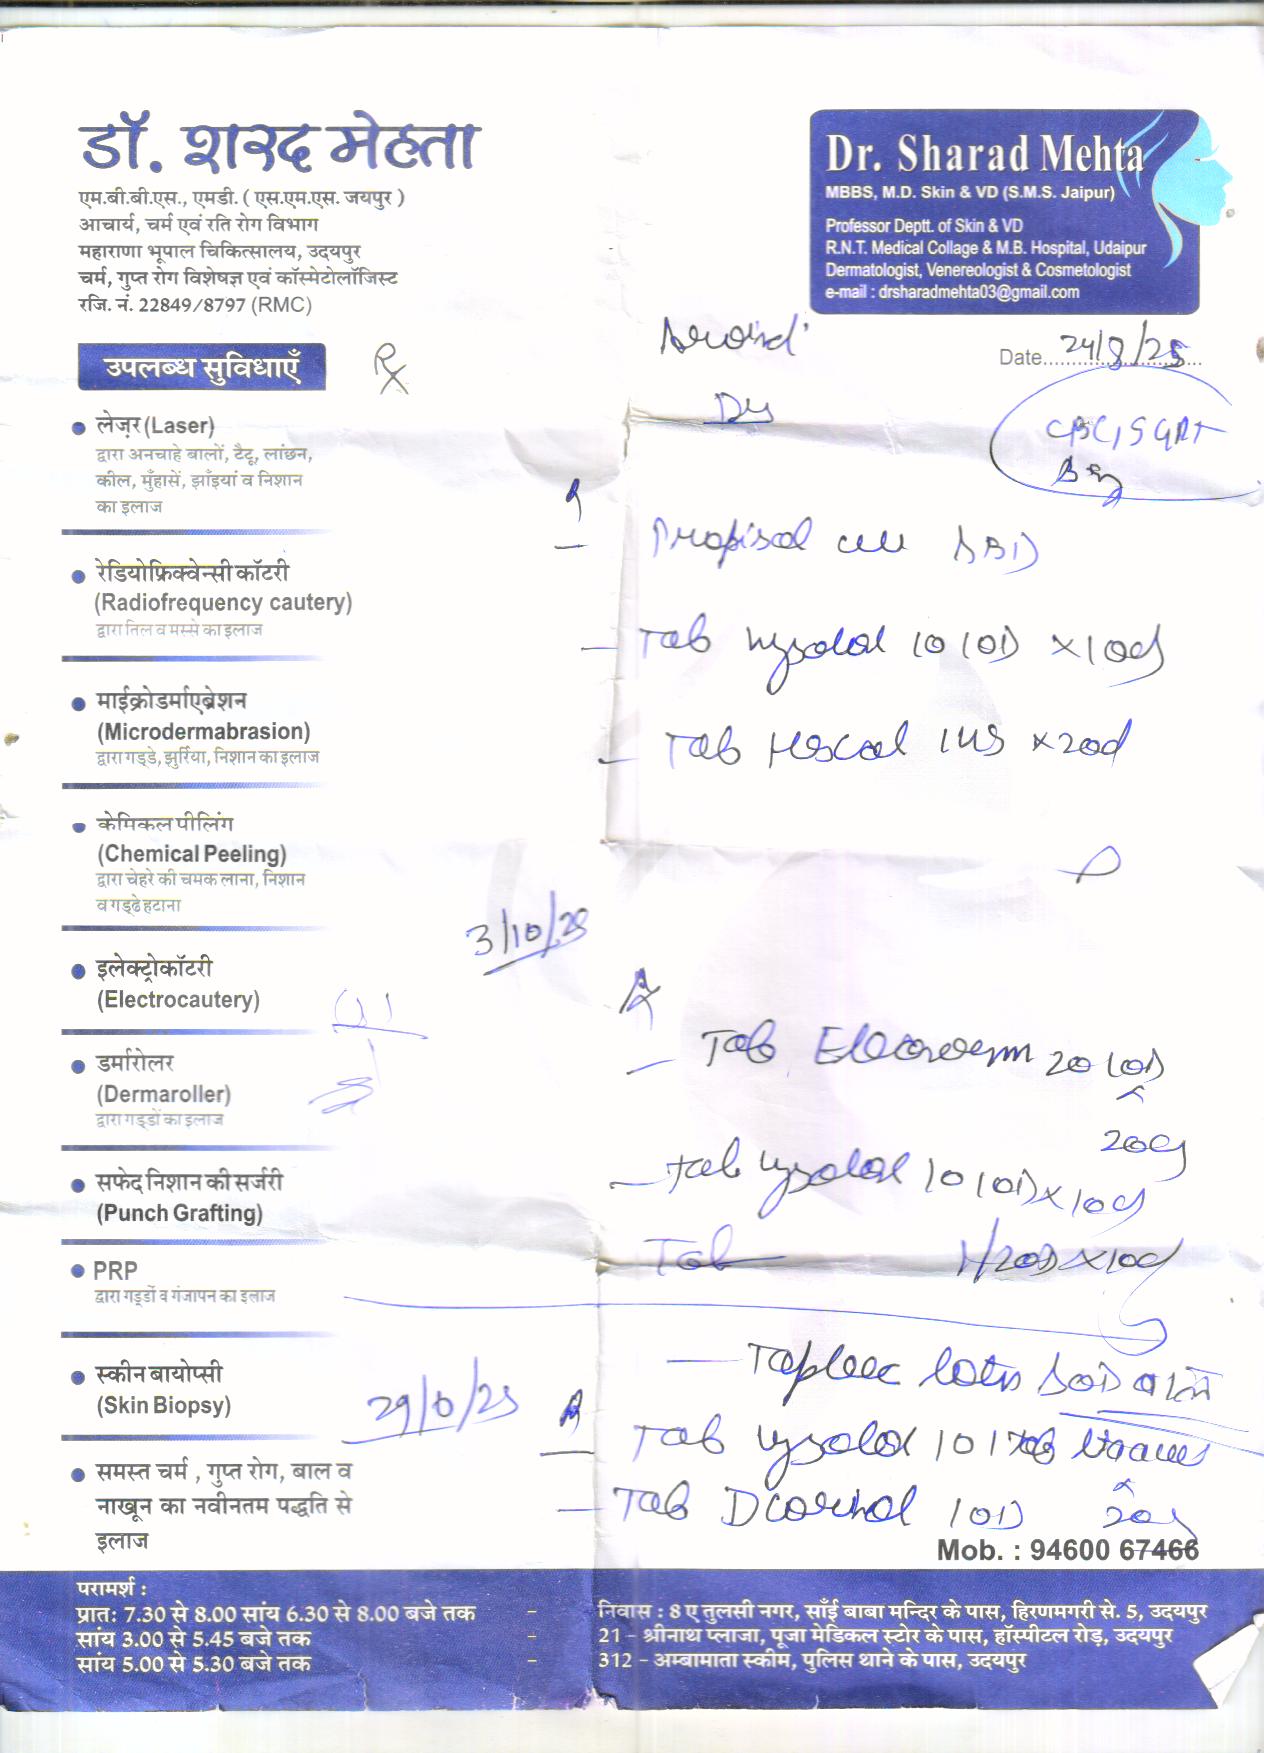 डॉ. शरद मेहता
एम.बी.बी.एस., एमडी. ( एस.एम.एस. जयपुर )
आचार्य, चर्म एवं रति रोग विभाग
महाराणा भूपाल चिकित्सालय, उदयपुर
चर्म, गुप्त रोग विशेषज्ञ एवं कॉस्मेटोलॉजिस्ट
रजि. नं. 22849/8797 (RMC)
Dr. Sharad Mehta
MBBS, M.D. Skin & VD (S.M.S. Jaipur)
Professor Deptt. of Skin & VD
R.N.T. Medical Collage & M.B. Hospital, Udaipur
Dermatologist, Venereologist & Cosmetologist
e-mail : drsharadmehta03@gmail.com
Date
उपलब्ध सुविधाएँ
Rx
CBC, SGPT
• लेज़र (Laser)
द्वारा अनचाहे बालों, टैटू, लांछन,
कील, मुँहासें, झाँइयां व निशान
का इलाज
• रेडियोफ्रिक्वेन्सी कॉटरी
(Radiofrequency cautery)
द्वारा तिल व मस्से का इलाज
• माईक्रोडर्माएब्रेशन
(Microdermabrasion)
द्वारा गड्डे, झुर्रिया, निशान का इलाज
• केमिकल पीलिंग
(Chemical Peeling)
द्वारा चेहरे की चमक लाना, निशान
व गड्ढे हटाना
• इलेक्ट्रोकॉटरी
(Electrocautery)
• डर्मारोलर
(Dermaroller)
द्वारा गड्डों का इलाज
• सफेद निशान की सर्जरी
(Punch Grafting)
• PRP
द्वारा गड्डों व गंजापन का इलाज
• स्कीन बायोप्सी
(Skin Biopsy)
• समस्त चर्म , गुप्त रोग, बाल व
नाखून का नवीनतम पद्धति से
इलाज
Tab 10 1OD x10d
Tab x20d
3/10/25
Tab 20 1OD
x
20d
Tab 10 1OD x10d
Tab
lotn
Tab 10 1 Tab
Tab 1OD x 20d
Mob. : 94600 67466
परामर्श :
प्रात: 7.30 से 8.00 सांय 6.30 से 8.00 बजे तक - निवास : 8 ए तुलसी नगर, साँई बाबा मन्दिर के पास, हिरणमगरी से. 5, उदयपुर
सांय 3.00 से 5.45 बजे तक - 21 - श्रीनाथ प्लाजा, पूजा मेडिकल स्टोर के पास, हॉस्पीटल रोड़, उदयपुर
सांय 5.00 से 5.30 बजे तक - 312 - अम्बामाता स्कीम, पुलिस थाने के पास, उदयपुर